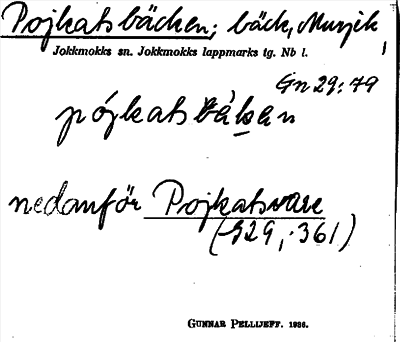 Pojkatsbäcken; bäck, Murjek,
Jokkmokks sn. Jokkmokks lappmarks tg. Nb l.
Gn 29:79
pójkatsbákan
nedanför Pojkatsvare
(329, 361)
GUNNAR PELLIJEFF. 1936.